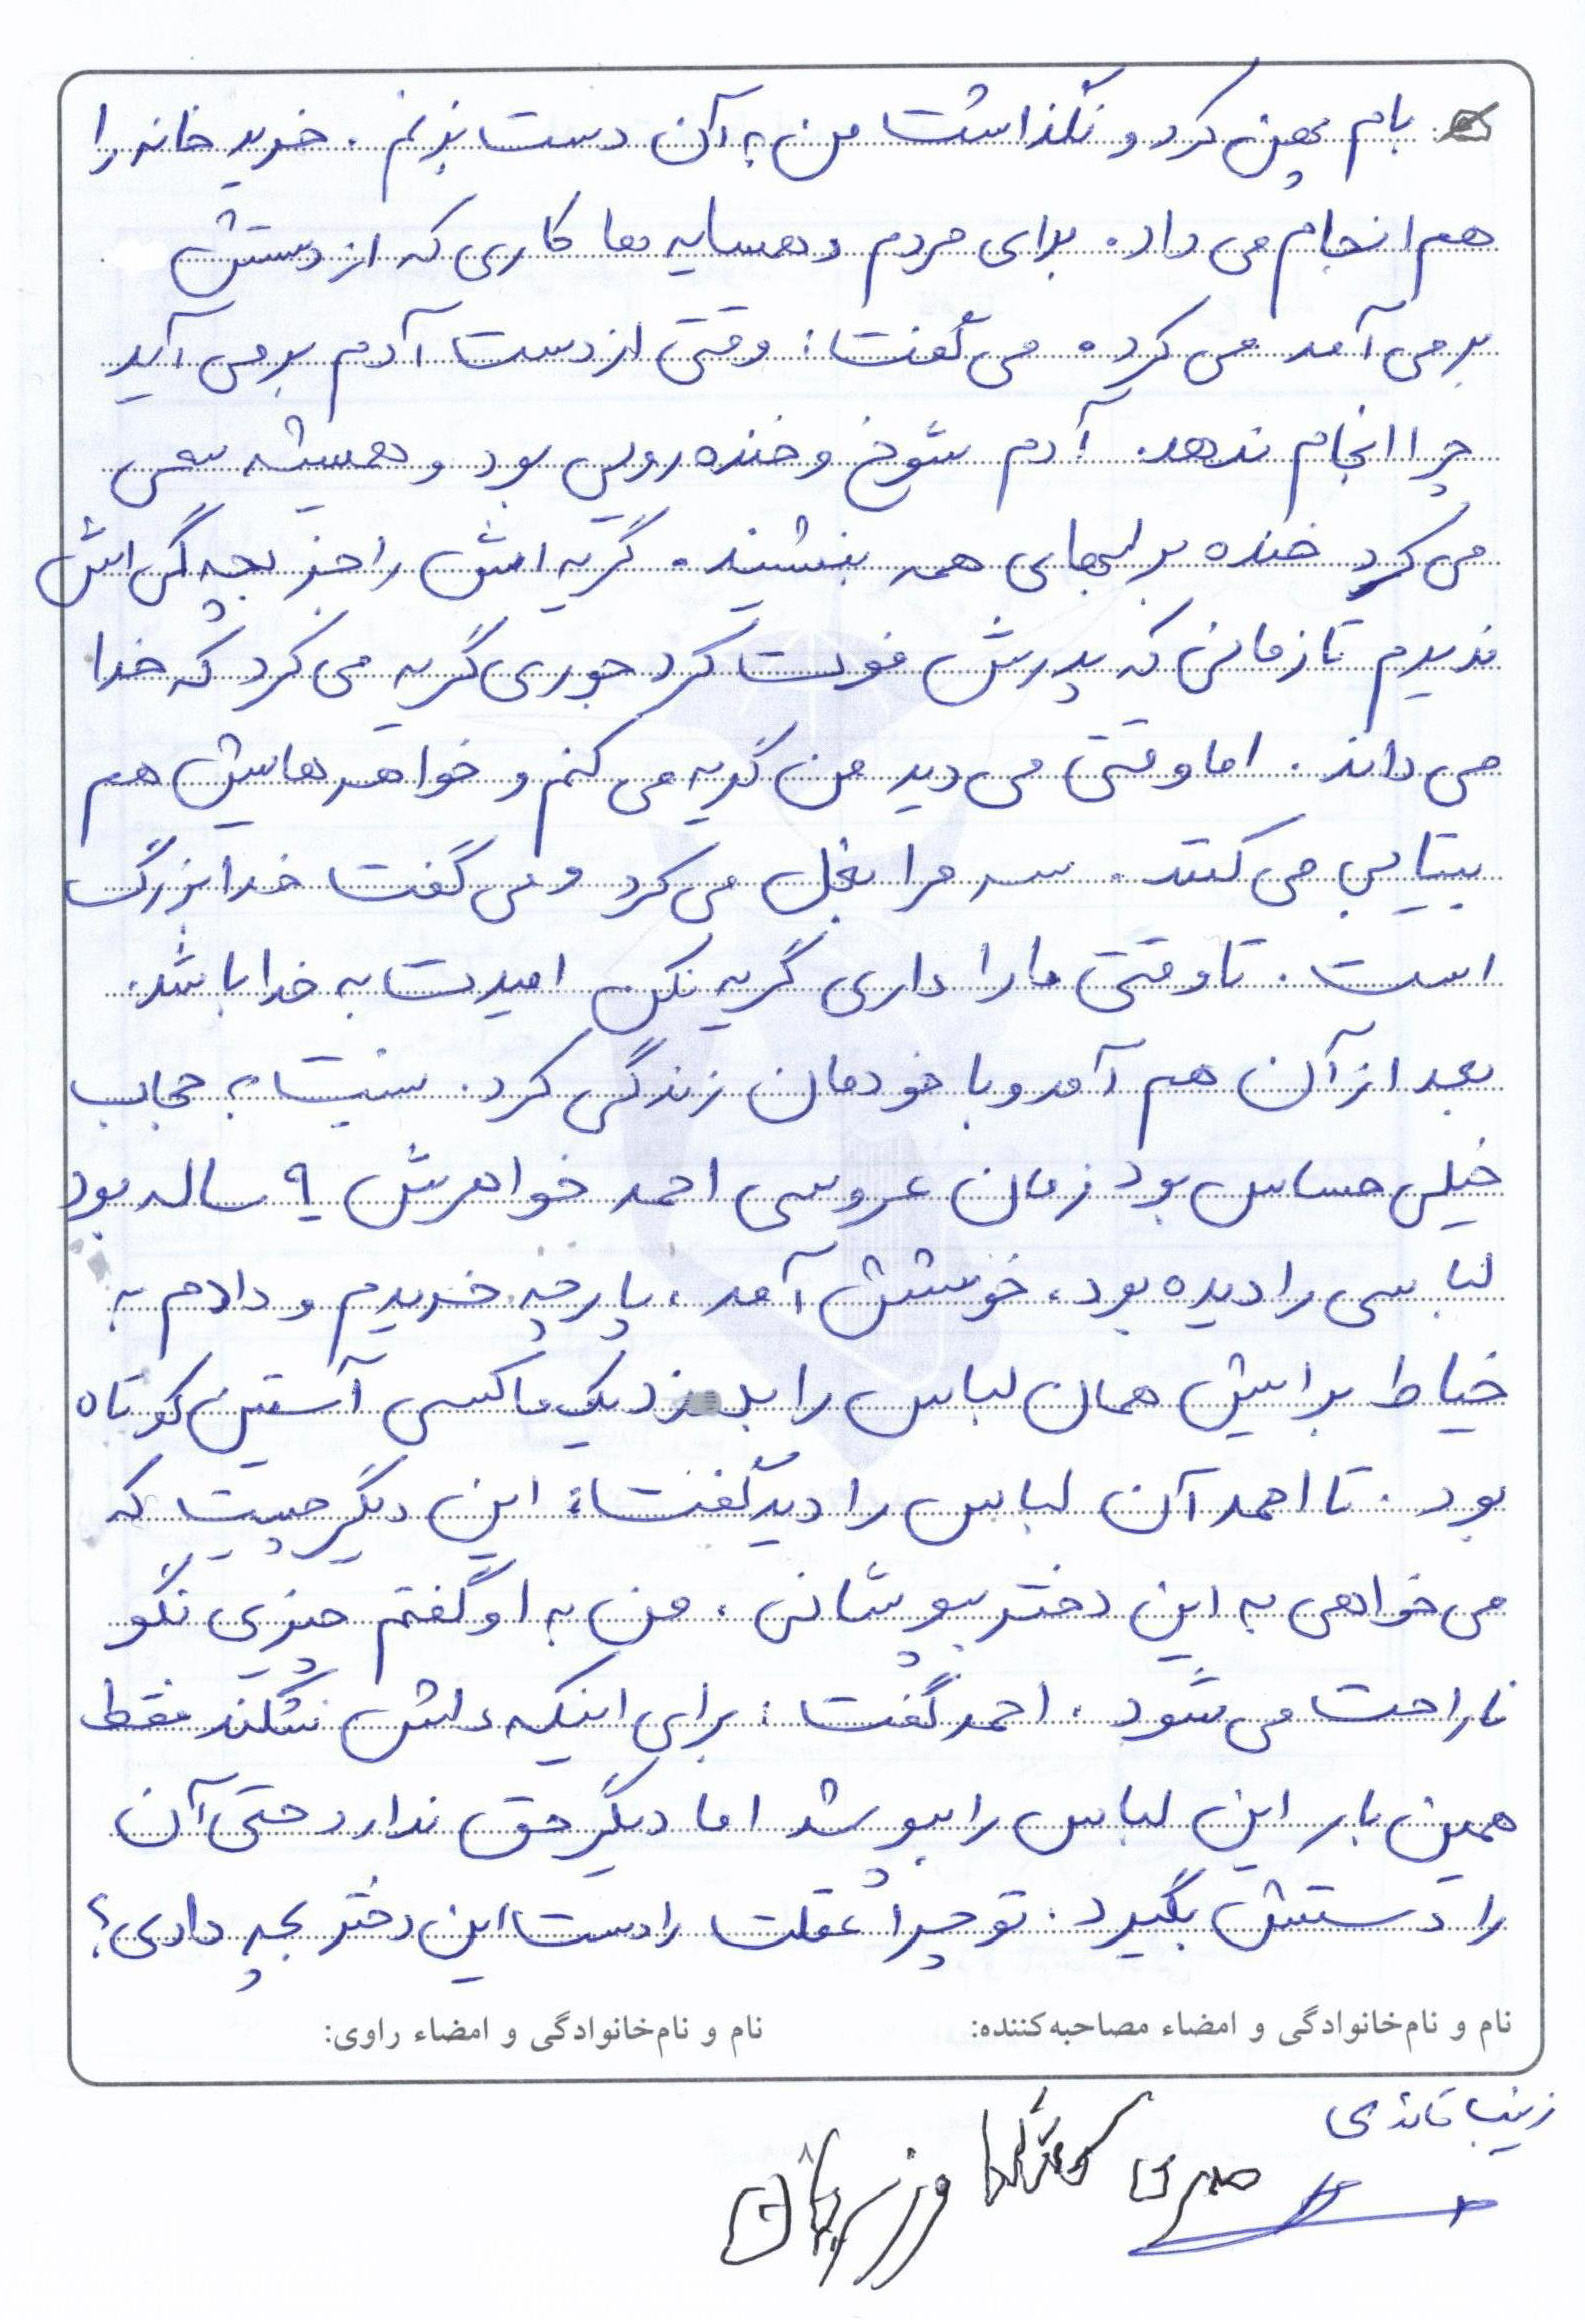 بام پهن کرد و نگذاشت من به آن دست بزنم. خرید خانه را
هم انجام می داد. برای مردم و همسایه ها کاری که از دستش
بر می آمد می کرد. می گفت: وقتی از دست آدم بر می آید
چرا انجام ندهد. آدم شوخ و خنده رویی بود و همیشه سعی
می کرد خنده بر لبهای همه بنشیند. گریه اش را جز بچه گی اش
ندیدم تا زمانی که پدرش فوت کرد جوری گریه می کرد که خدا
می داند. اما وقتی می دید من گریه می کنم و خواهرهایش هم
بیتابی می کنند. سر مرا بغل می کرد و می گفت خدا بزرگ
است. تا وقتی ما را داری گریه نکن امیدت به خدا باشد.
بعد از آن هم آمد و با خودمان زندگی کرد. نسبت به حجاب
خیلی حساس بود زمان عروسی احمد خواهرش ۹ ساله بود
لباسی را دیده بود، خوشش آمد، پارچه خریدم و دادم به
خیاط برایش همان لباس را بدوزد یک ماکسی آستین کوتاه
بود. تا احمد آن لباس را دید گفت: این دیگر چیست که
می خواهی به این دختر بپوشانی. من به او گفتم چیزی نگو
ناراحت می شود. احمد گفت: برای اینکه دلش نشکند فقط
همین بار این لباس را بپوشد اما دیگر حق ندارد حتی آن
را دستش بگیرد. تو چرا عقلت را دست این دختر بچه دادی؟
نام و نام‌خانوادگی و امضاء مصاحبه‌کننده: نام و نام‌خانوادگی و امضاء راوی:
زینب